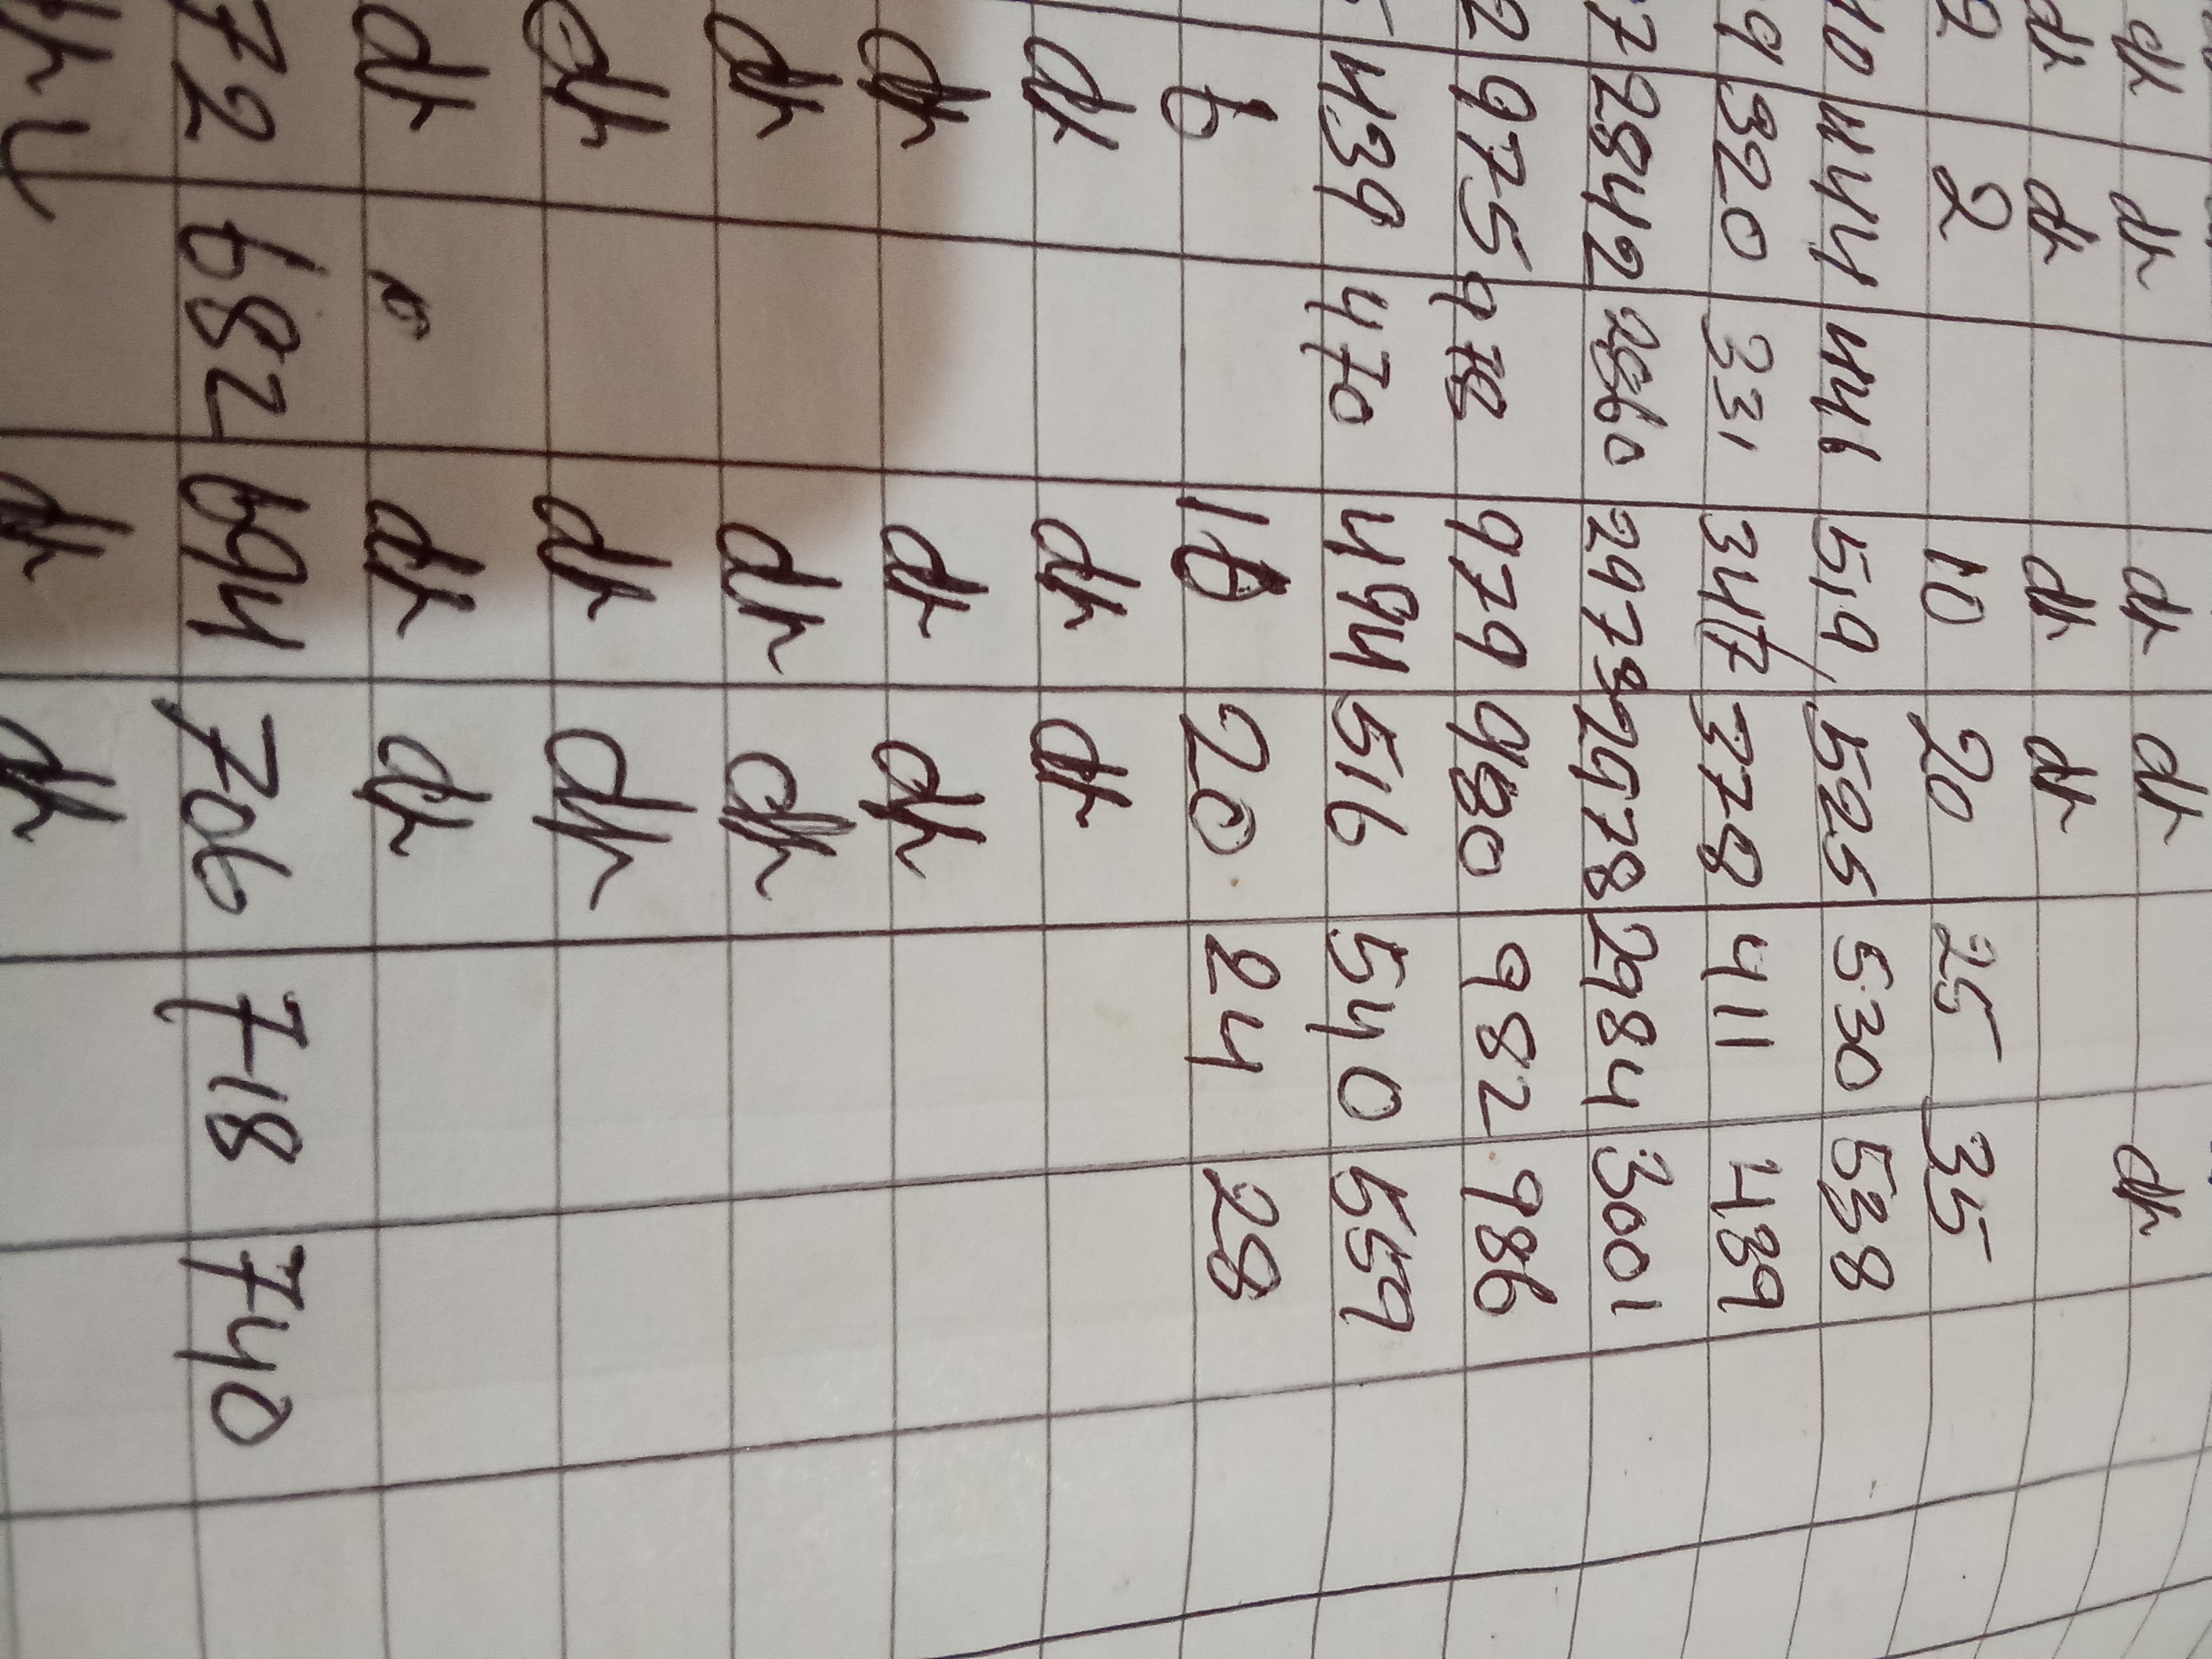 dr dr dr dr dr
dr dr dr dr
2 2 10 20 25 35
444 446 519 525 530 538
9 320 331 347 378 411 439
7 2842 2860 2979 2978 2984 3001
2 975 978 979 980 982 986
439 470 494 516 540 559
6 10 20 24 28
dr dr dr
dr dr dr
dr dr dr
dr dr dr
dr dr dr
72 682 694 706 718 740
dr dr